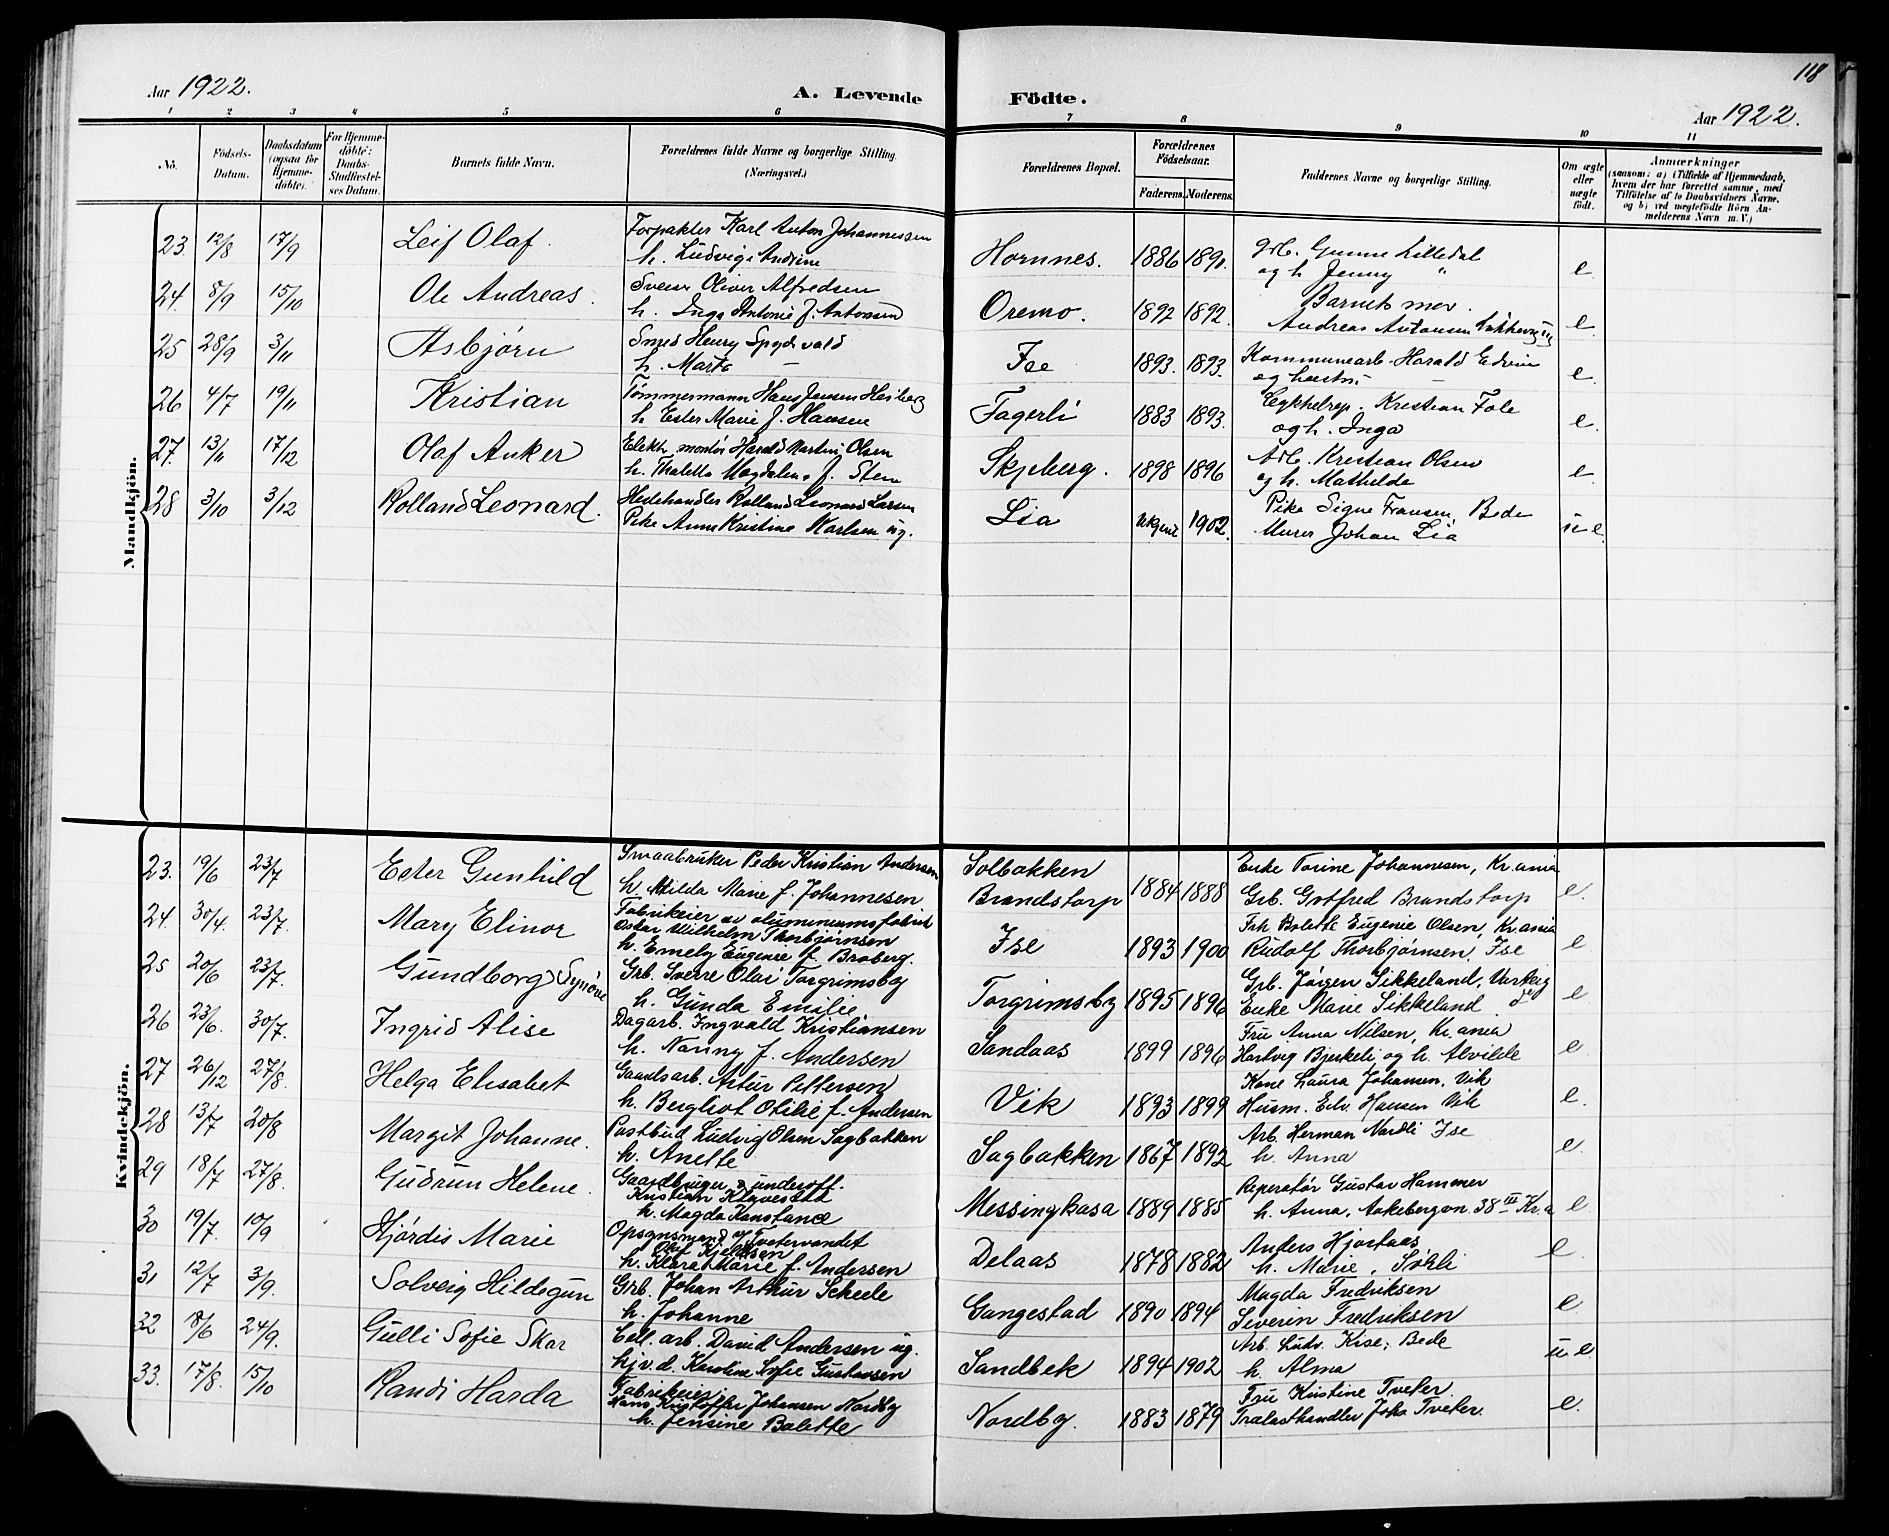 118
Aar 1922. A. Levende Födte. Aar 1922.
1 2 3 4 5 6 7 8 9 10 11
No. Födsels-Datum. Daabsdatum (ogsaa for Hjemme-döbte). For Hjemme-döbte: Daabs-Stadfæstel-ses Datum. Barnets fulde Navn. Forældrenes fulde Navne og borgerlige Stilling. (Næringsvei.) Forældrenes Bopæl. Forældrenes Födselsaar. Faderens. Moderens. Faddernes Navne og borgerlige Stilling. Om ægte eller uægte födt. Anmærkninger
(saasom: a) i Tilfælde af Hjemmedaab,
hvem der har forrettet samme, med
Tilföielse af to Daabsvidners Navne,
og b) ved uægtefödte Börn An-
melderens Navn m. V.)
Mandkjön.
23. 12/8 17/9 Leif Olaf. Forpakter Karl Anton Johannessen Hornnes. 1886 1890. Grb. Gunne Lilledal e.
h. Ludvig Andrine og h. Jenny "
24. 8/9 15/10 Ole Andreas. Sveiser Oliver Alfredsen Oremo. 1892 1892. Barnets mor. e.
h. Inga Antonie f. Antonsen Andreas Antonsen
25 28/9 3/11 Asbjørn Smed Henry Spydevold Ise 1893. 1893. Kommunearb. Harald Edvin e.
h. Marta — og hustru —
26 4/7 19/11 Kristian Tømmermann Hans Jensen Heiberg Fagerli 1883 1893. Kristian Fole e.
h. Ester Marie f. Hansen og h. Inga
27. 13/11 17/12 Olaf Anker Elektr. montør Harald Martin Olsen Skjeberg. 1898 1896 Arb. Kristian Olsen e
h. Thaletta Magdalena f. Sten og h. Mathilde
28 3/10 3/12 Rolland Leonard. Rolland Leonard Larsen Lia ukjent 1902. Pike Signe Fransen, Bede u e.
Pike Anne Kristine Karlsen ug. Murer Johan Lia
Kvindekjön.
23. 19/6 23/7 Ester Gunhild Smaabruker Peder Kristian Andersen Solbakken 1884 1888 Enke Torine Johannesen, Kr.ania e.
h. Milda Marie f. Johannesen Brandstorp Grb. Gotfred Brandstorp
24. 30/4. 23/7. Mary Elinor Fabrikeier av aluminiumsfabrik Ise 1893 1900 Frk Bolette Eugenie Olsen, Kr.ania e
Oscar Wilhelm Thorbjørnsen Rudolf Thorbjørnsen, Ise
h. Emely Eugenie f. Broberg.
25 20/6 23/7. Gundborg Synøve Grb. Sverre Olai Torgrimsby Torgrimsby 1895 1896 Grb. Jørgen Sikkeland, Varteig e
h. Gunda Emilie Enke Marie Sikkeland do
26 23/6. 30/7. Ingrid Alise Dagarb. Ingvald Kristiansen Sandaas 1899 1896 Fru Anna Nilsen, Kr.ania e
h. Nanny f. Andersen Hartvig Bjerkeli og h. Alvilde
27 26/12 27/8. Helga Elisabet Gaardsarb. Artur Pettersen Vik 1893 1899 Kone Laura Johansen, Vik e.
h. Bergliot Otilie f. Andersen Husm. Edv. Hansen Vik
28 13/7 20/8 Margit Johanne. Postbud Ludvig Olsen Sagbakken Sagbakken 1867 1892 Arb. Herman Nordli Ise e
h. Anette h. Anna
29 18/7 27/8. Gudrun Helene. Gaardbruger & underoff. Messingkasa 1889 1885 Reperatør Gustav Hammer e
Kristian Klavestad h. Anna, Aakebergvn 38 III Kr.a
h. Magda Konstance
30 19/7. 10/9 Hjørdis Marie Opsynsmand v/ Tvetervandet Delaas 1878 1882 Anders Hjortaas e
Olaf Kjeldsen h. Marie, Sokli
h. Klara Marie f. Andersen
31 12/7 3/9. Solveig Hildegun Grb. Johan Arthur Scheele Gangestad 1890 1894 Magda Fredriksen e
h. Johanne Severin Fredriksen
32 8/6 24/9. Gulli Sofie Skar Cell. arb. David Andersen ug. Sandbek 1894 1902 Arb. Ludv. Kise, Bede u e.
hjv. d. Karoline Sofie Gustavsen h. Alma
33. 17/8. 15/10 Randi Harda Fabrikeier Nordby. 1883 1879 Fru Kristine Tveter. e.
Hans Kristoffer Johansen Nordby Trælasthandler Johs Tveter.
h. Jensine Bolette